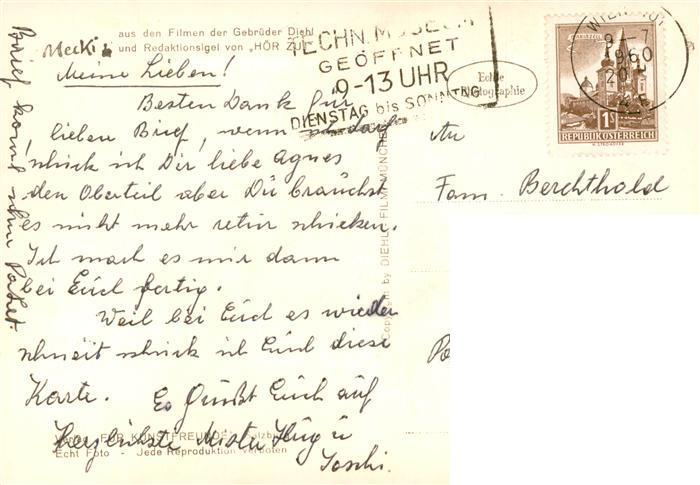 aus den Filmen der Gebrüder Diehl
Mecki
und Redaktionsigel von „HÖR ZU"
Meine Lieben!
Besten Dank für
lieben Brief, wenn
schick ich Dir liebe Agnes
den Oberteil aber Du brauchst
es nicht mehr retur schicken.
Ich mach es mir dann
bei Euch fertig.
Weil bei Euch es wieder
schneit schick ich Euch diese
Karte. Es grüßt Euch auf
Herzlichste
u
Verlag „FÜR KUNSTFREUNDE"
Echt Foto - Jede Reproduktion verboten
Brief komt ohne Paket.
Copyright by DIEHL-FILM MÜNCHEN
TECHN. MUSEUM
GEÖFFNET
9-13 UHR
DIENSTAG bis SONNTAG
Echte
Photographie
WIEN
9-7
1960
1S
REPUBLIK ÖSTERREICH
An
Fam. Berchthold